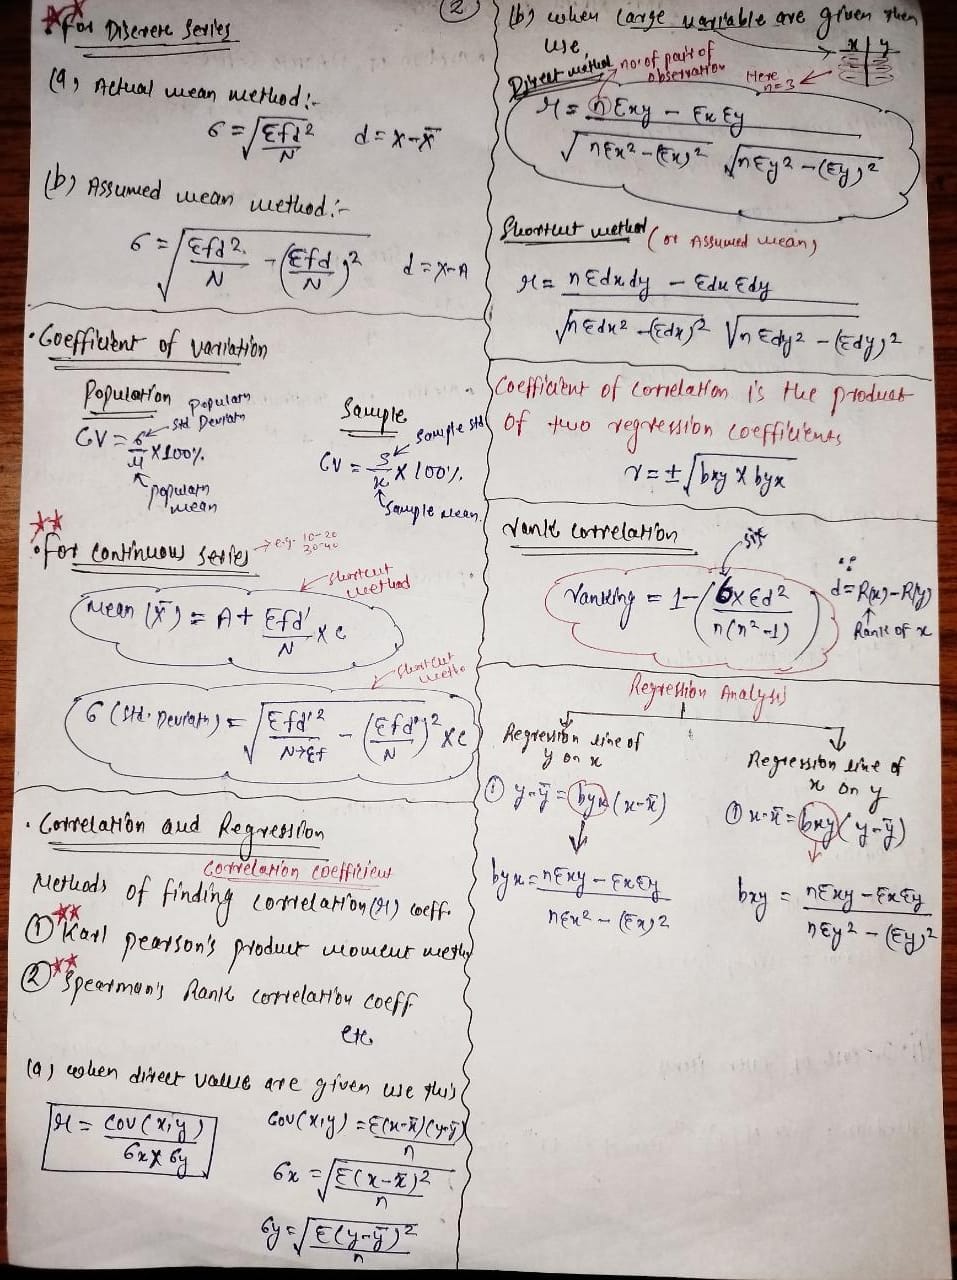 ②
• For Discrete Series
(a) Actual mean method:-
σ = √(Σfd²/N) d = x-x̄
(b) Assumed mean method:-
σ = √(Σfd²/N - (Σfd/N)²) d = x-A
• Coefficient of variation
Population
Populatn
Std Deviatn
CV = σ/μ × 100%
Populatn
mean
Sample
Sample std
CV = S/x × 100%
Sample mean
• For continuous series → e.g. 10-20
30-40
shortcut
method
Mean (x̄) = A + Σfd'/N × c
shortcut
metho
σ (Std. Deviatn) = √(Σfd'²/N - (Σfd'/N)²) × c
N→Σf
• Correlation and Regression
Correlation coefficient
Methods of finding correlation (r) coeff.
① Karl pearson's product moment metho
② Spearman's Rank correlation coeff
etc
(a) when direct value are given use this
r = Cov(x,y)/σx × σy
Cov(x,y) = Σ(x-x̄)(y-ȳ)/n
σx = √(Σ(x-x̄)²/n)
σy = √(Σ(y-ȳ)²/n)
(b) when large variable are given then
use, → x | y
Direct method no. of pair of
observation
Here
n=3
r = nΣxy - Σx Σy / √(nΣx²-(Σx)²) √(nΣy²-(Σy)²)
Shortcut method (or Assumed mean)
r = nΣdxdy - Σdx Σdy / √(nΣdx²-(Σdx)²) √(nΣdy²-(Σdy)²)
Coefficient of correlation is the product
of two regression coefficients
r = ± √(bxy × byx)
rank correlation
ranking = 1-(6×Σd²/n(n²-1)) ∵ d = R(x)-R(y)
Rank of x
Regression Analysis
Regression line of
y on x
① y-ȳ = byx (x-x̄)
byx = nΣxy - ΣxΣy / nΣx² - (Σx)²
Regression line of
x on y
① x-x̄ = bxy (y-ȳ)
bxy = nΣxy - ΣxΣy / nΣy² - (Σy)²